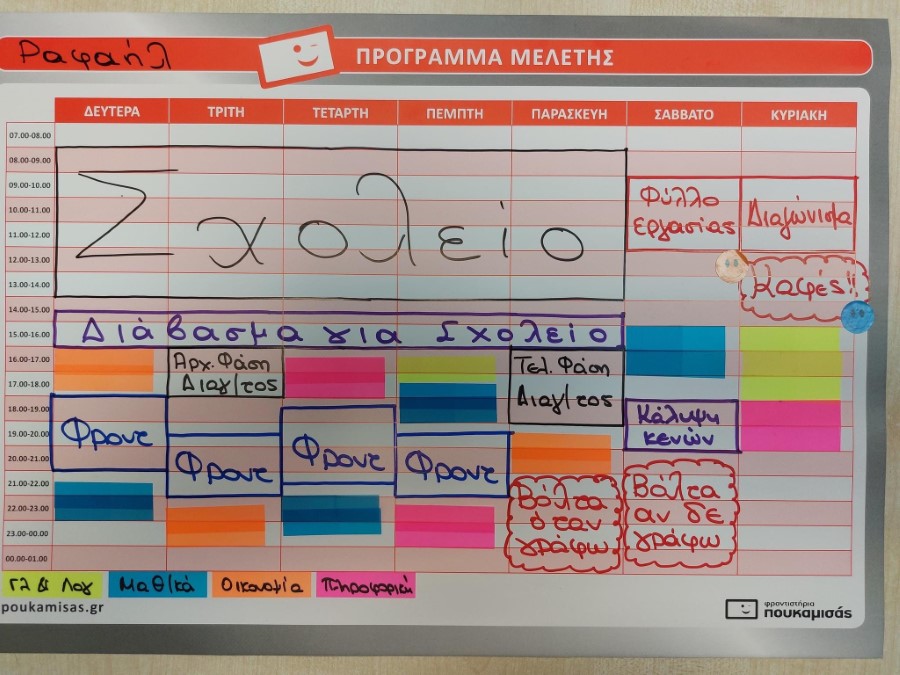 Ραφαήλ
ΠΡΟΓΡΑΜΜΑ ΜΕΛΕΤΗΣ
ΔΕΥΤΕΡΑ ΤΡΙΤΗ ΤΕΤΑΡΤΗ ΠΕΜΠΤΗ ΠΑΡΑΣΚΕΥΗ ΣΑΒΒΑΤΟ ΚΥΡΙΑΚΗ
07.00-08.00
08.00-09.00
09.00-10.00
10.00-11.00
11.00-12.00
12.00-13.00
13.00-14.00
14.00-15.00
15.00-16.00
16.00-17.00
17.00-18.00
18.00-19.00
19.00-20.00
20.00-21.00
21.00-22.00
22.00-23.00
23.00-00.00
00.00-01.00
Σχολείο
Φύλλο
εργασίας
Διαγώνισμα
Καφές!!
Διάβασμα για Σχολείο
Αρχ. Φάση
Διαγ/τος
Τελ. Φάση
Διαγ/τος
Φροντ
Φροντ
Φροντ
Φροντ
Κάλυψη
κενών
Βόλτα
όταν
γράφω
Βόλτα
αν δε
γράφω
Γλ & Λογ Μαθ/κά Οικονομία Πληροφορική
poukamisas.gr
φροντιστήρια
πουκαμισάς